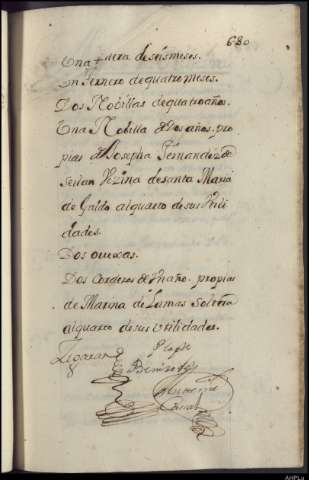 680
Una ternera de seis meses.
Un ternero de quatro meses.
Dos Nobillas de quatro años.
Una Nobilla de Dos años, pro
pias de Josepha Fernandez de
Seixan Vezina de Santa Maria
de Galdo al quarto de sus Vtili
dades.
Dos ouexas.
Dos Corderos de Vn año, propias
de Marina de Lamas Soltera
al quarto de sus vtilidades.
AHPLu